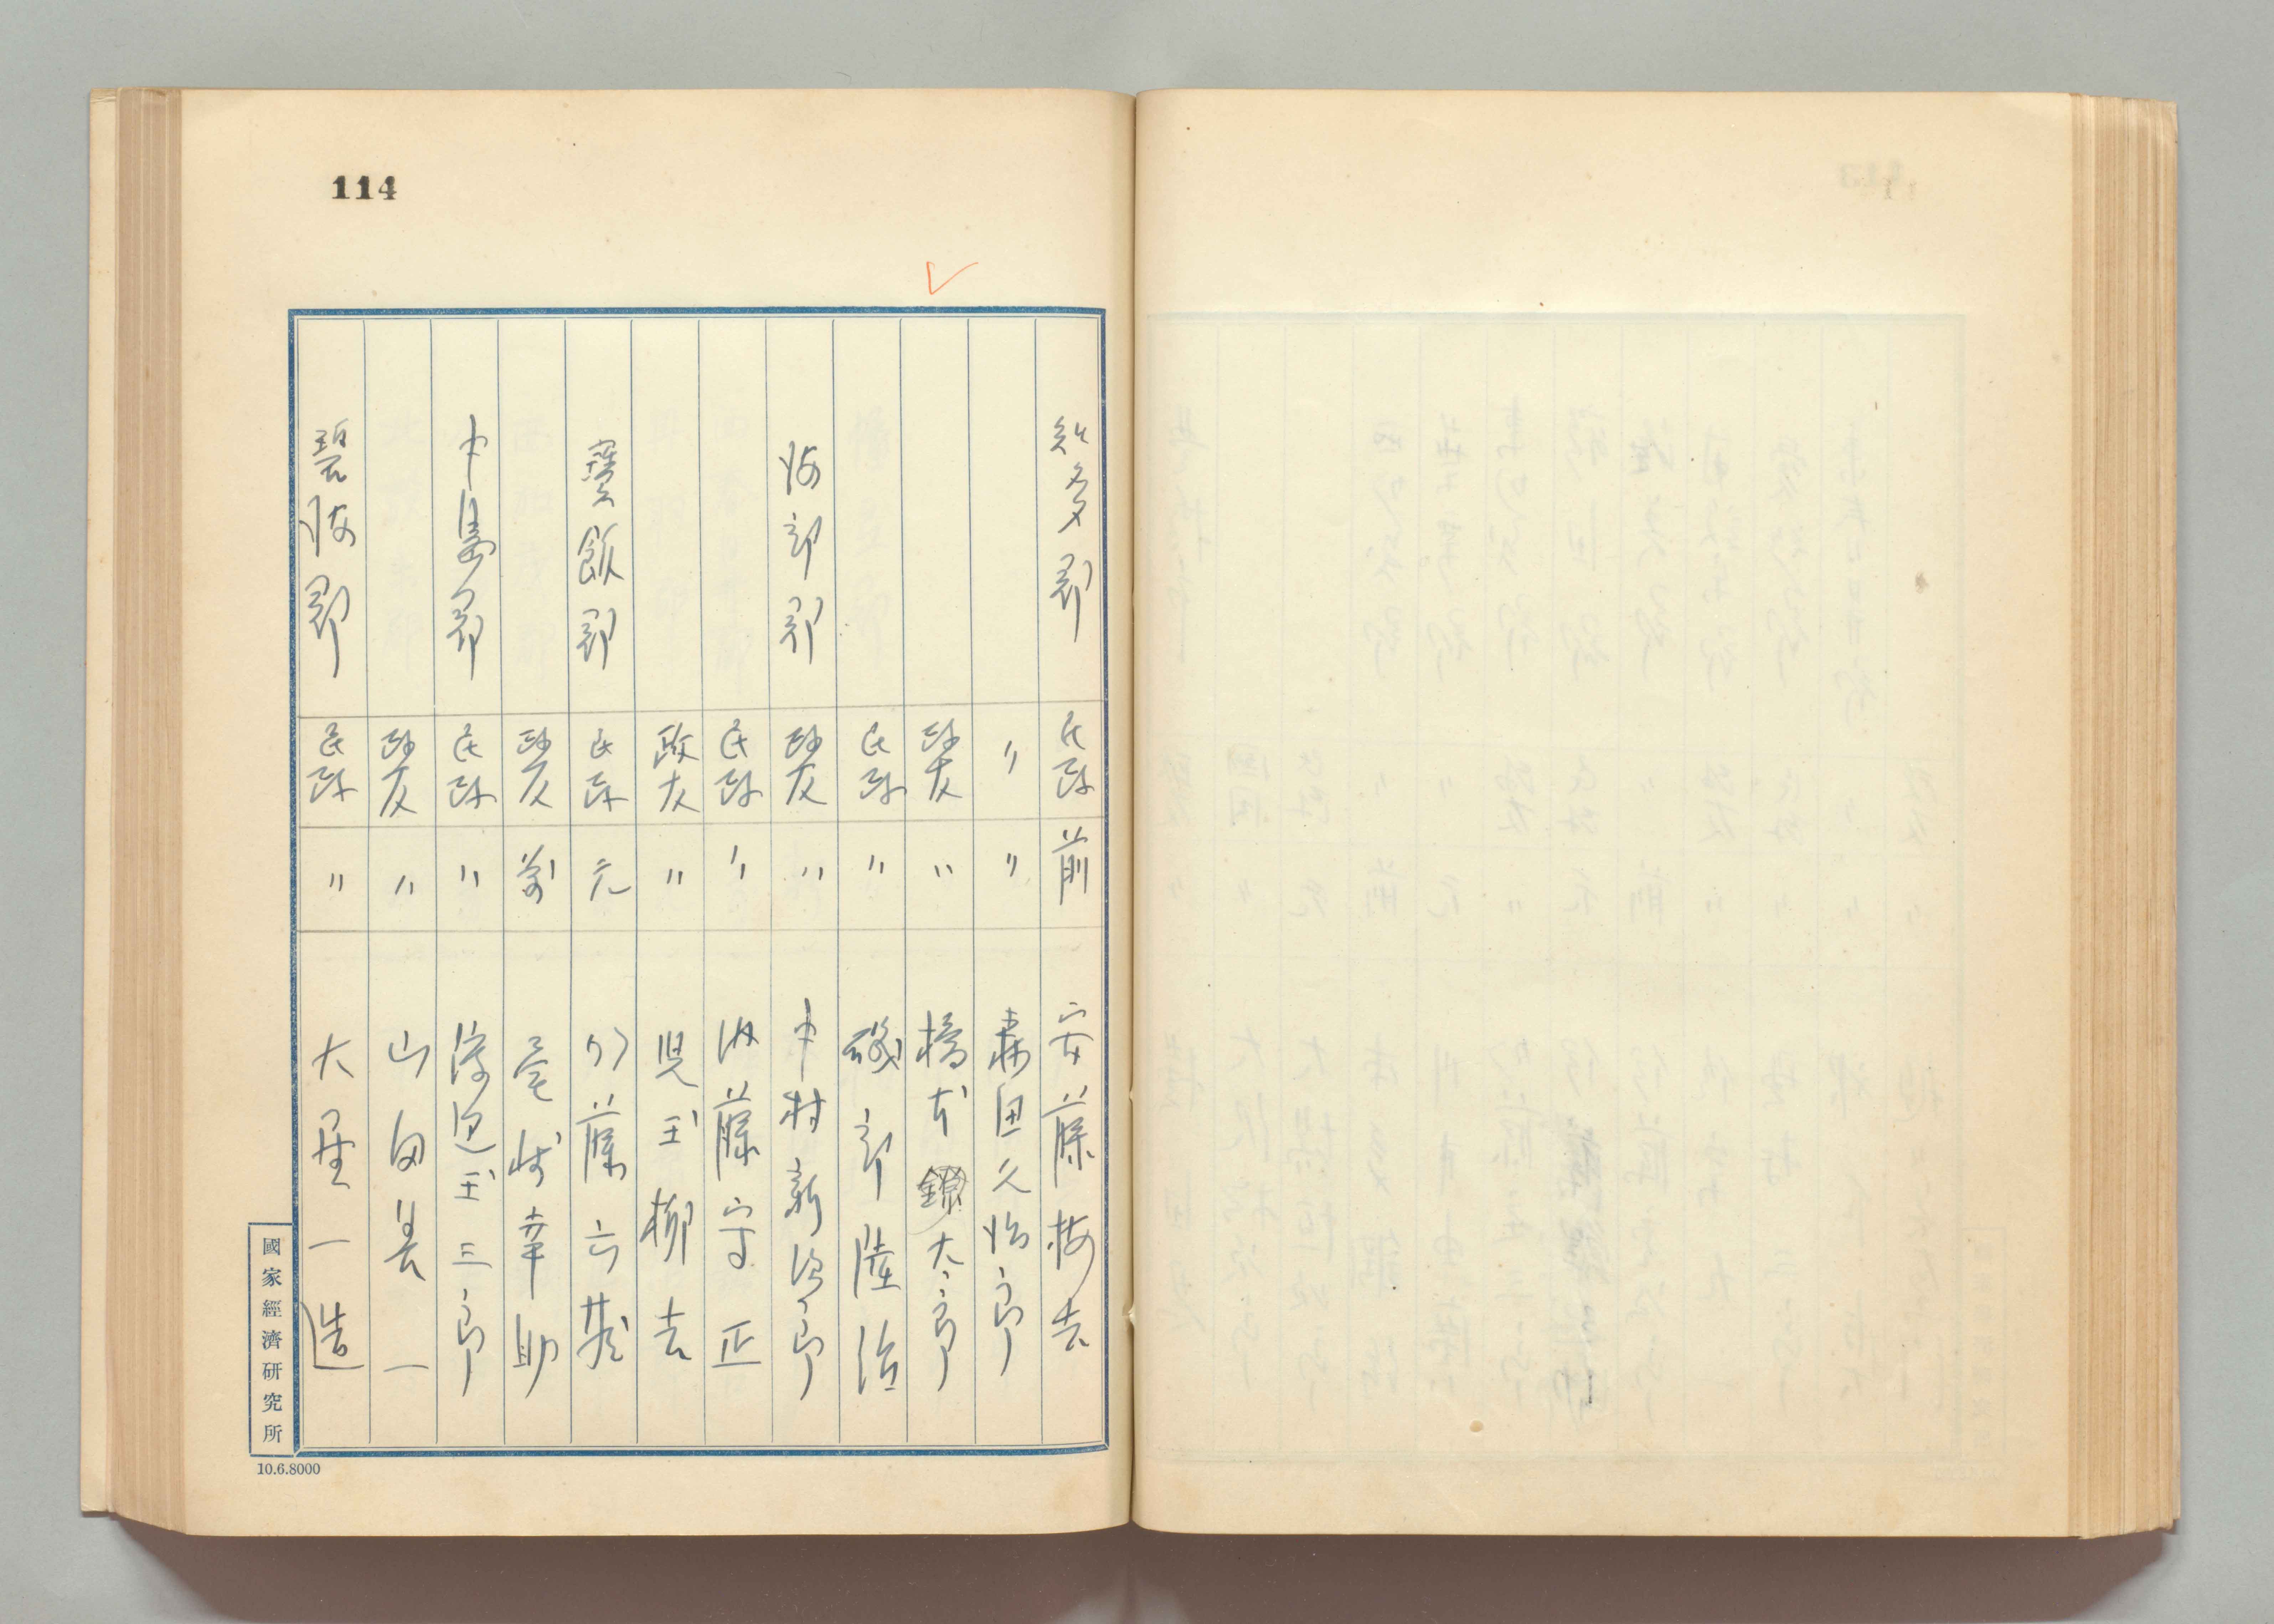 114
知多郡 民政 前 安藤梅吉
〃 〃 森田久治郎
政友 〃 橋本 太郎
民政 〃 磯部陸治
海部郡 政友 〃 中村新治郎
民政 〃 加藤守正
政友 〃 児玉柳吉
寶飯郡 民政 元 加藤六蔵
政友 前 尾崎幸助
中島郡 民政 〃 渡辺玉三郎
政友 〃 山田眞一
碧海郡 民政 〃 大屋一造
國家經濟研究所
10.6.8000